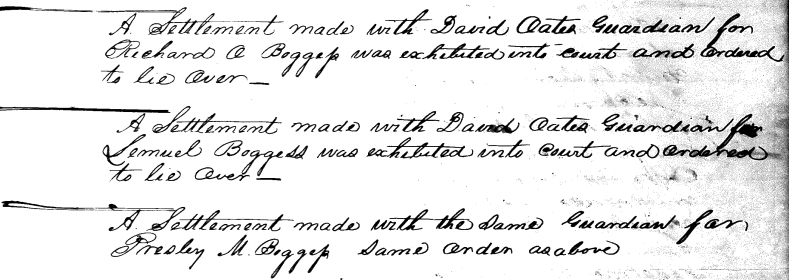 A Settlement made with David Oates Guardian for
Richard O Boggess was exhibited into court and ordered
to lie over —
A Settlement made with David Oates Guardian for
Lemuel Boggess was exhibited into court and ordered
to lie over —
A Settlement made with the same Guardian for
Presley M. Boggess same order as above